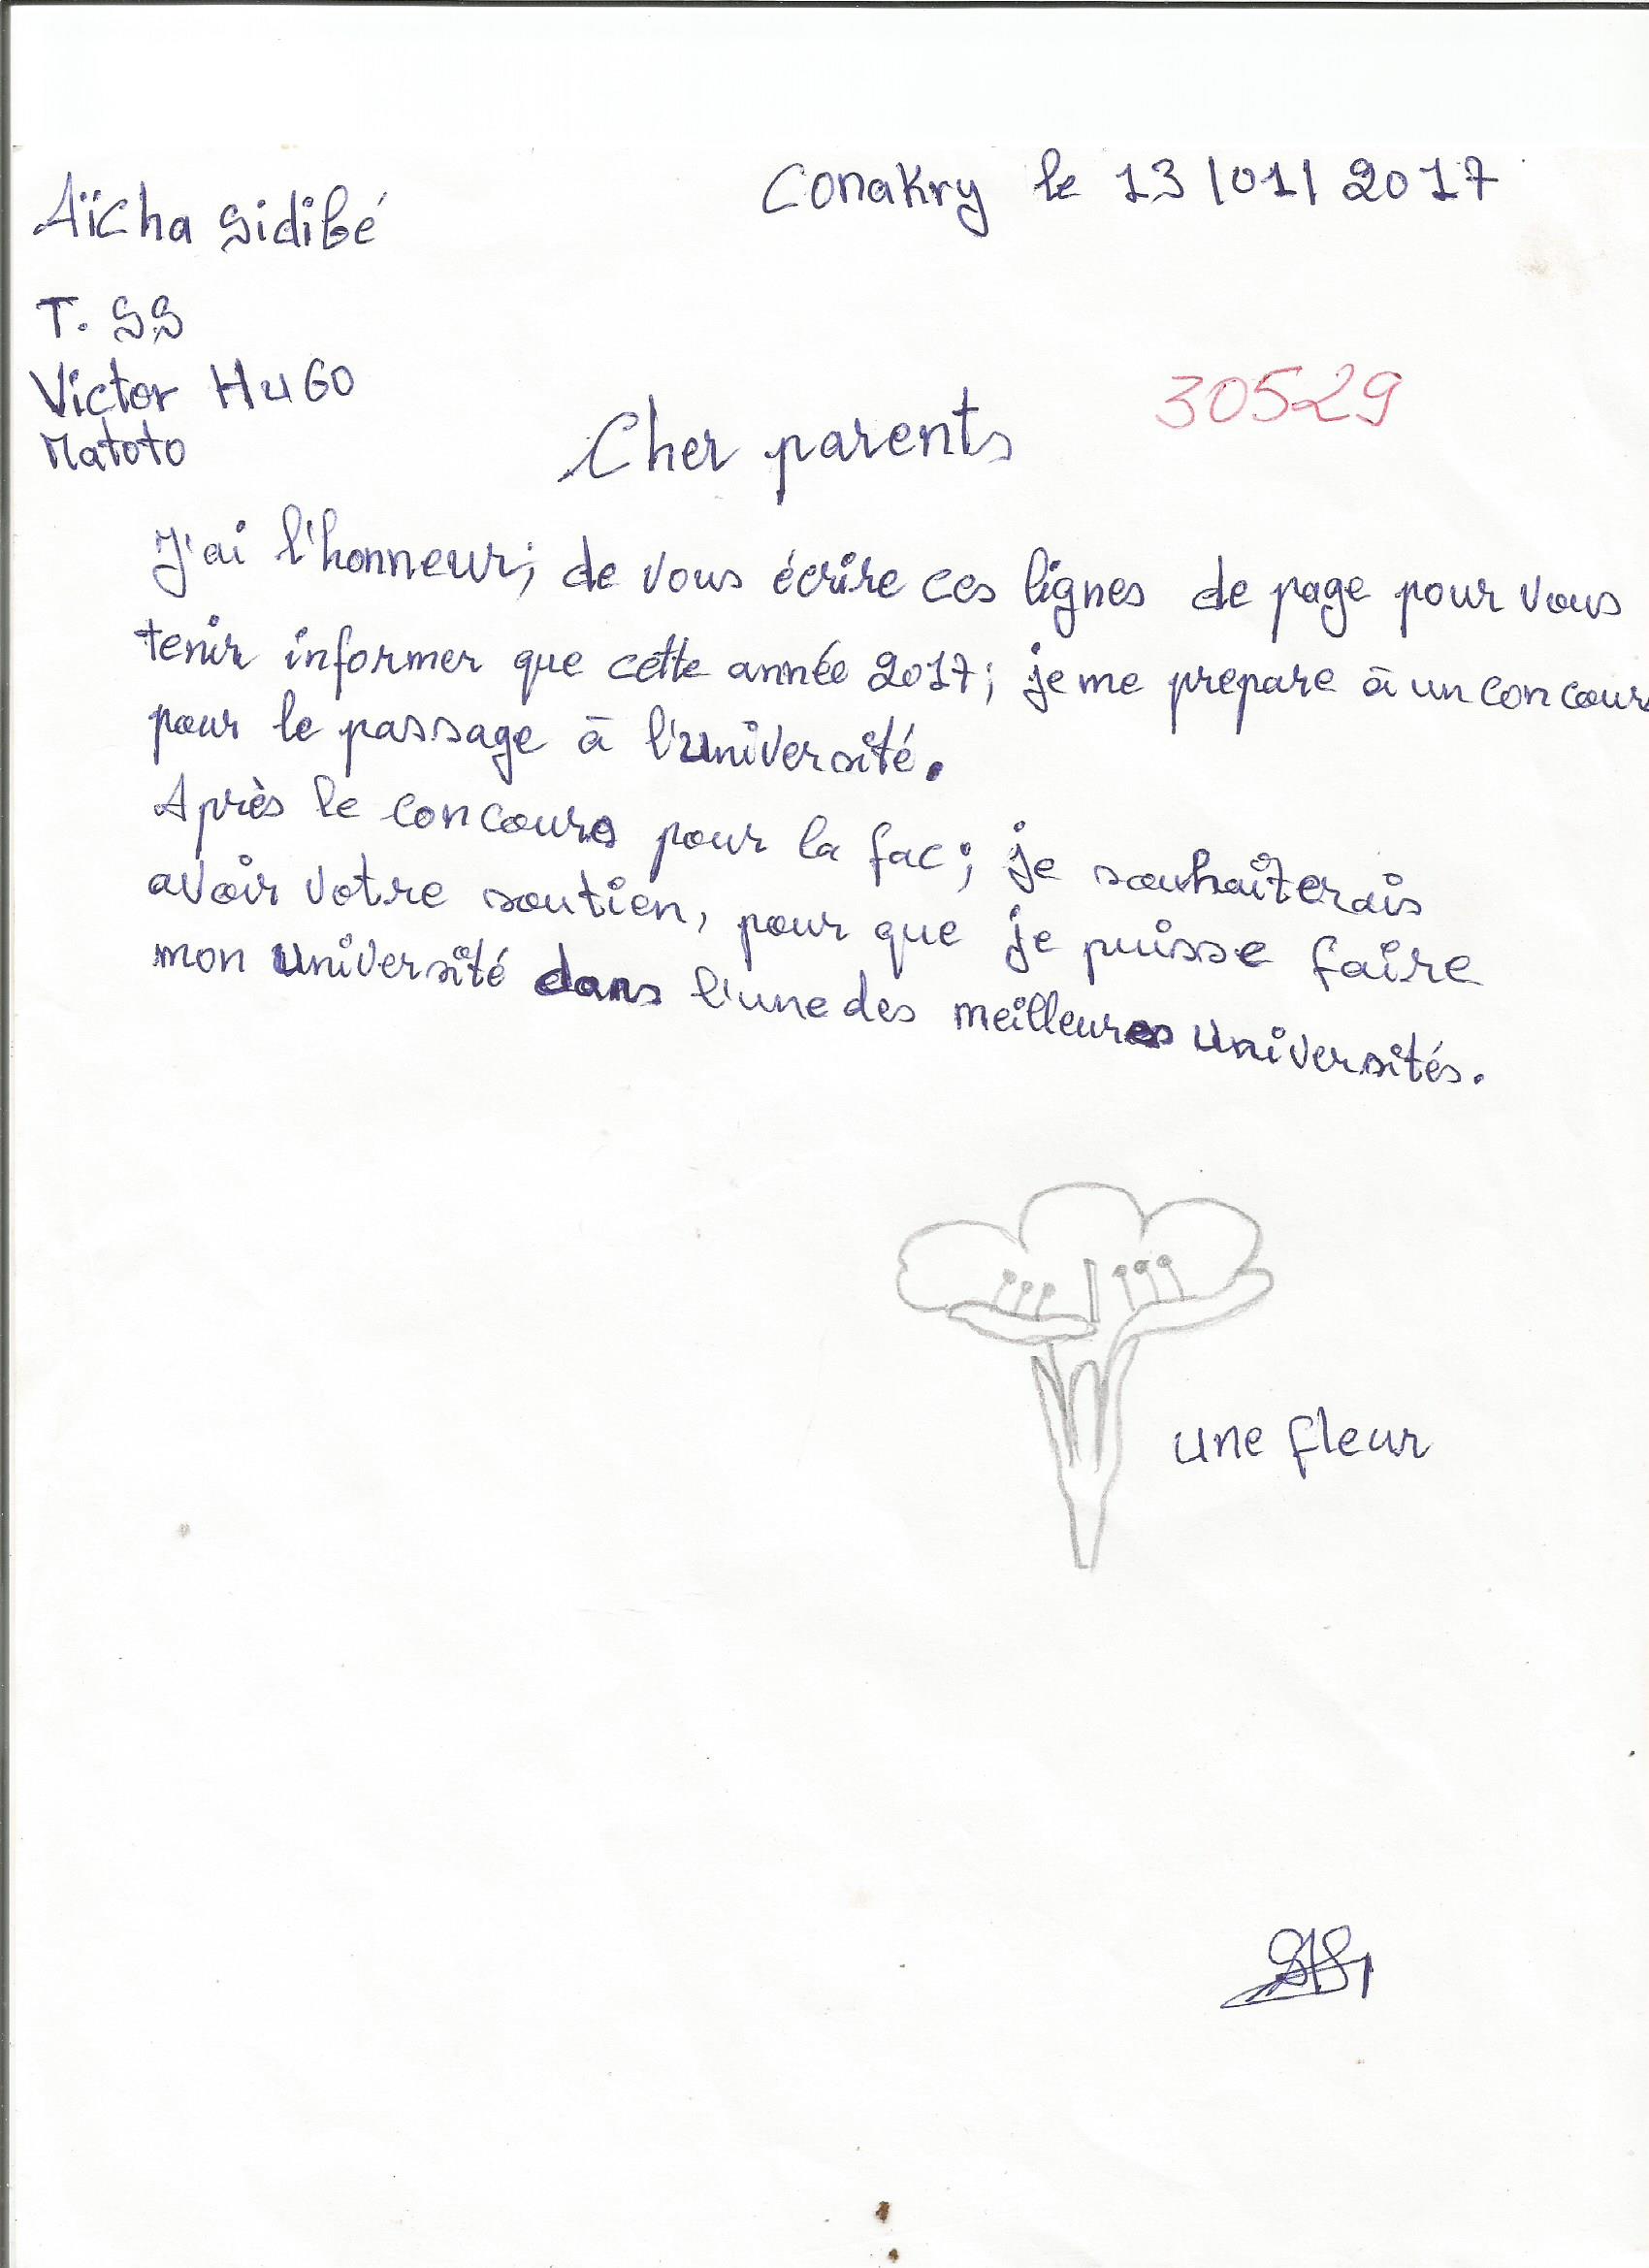 Conakry le 13/01/2017
Aïcha Sidibé
T. SS
Victor HuGo
Matoto
30529
Cher parents
J'ai l'honneur; de vous écrire ces lignes de page pour vous
tenir informer que cette année 2017; je me prepare à un concours
pour le passage à l'université.
Après le concours pour la fac; je souhaiterais
avoir votre soutien, pour que je puisse faire
mon université dans l'une des meilleures universités.
une fleur